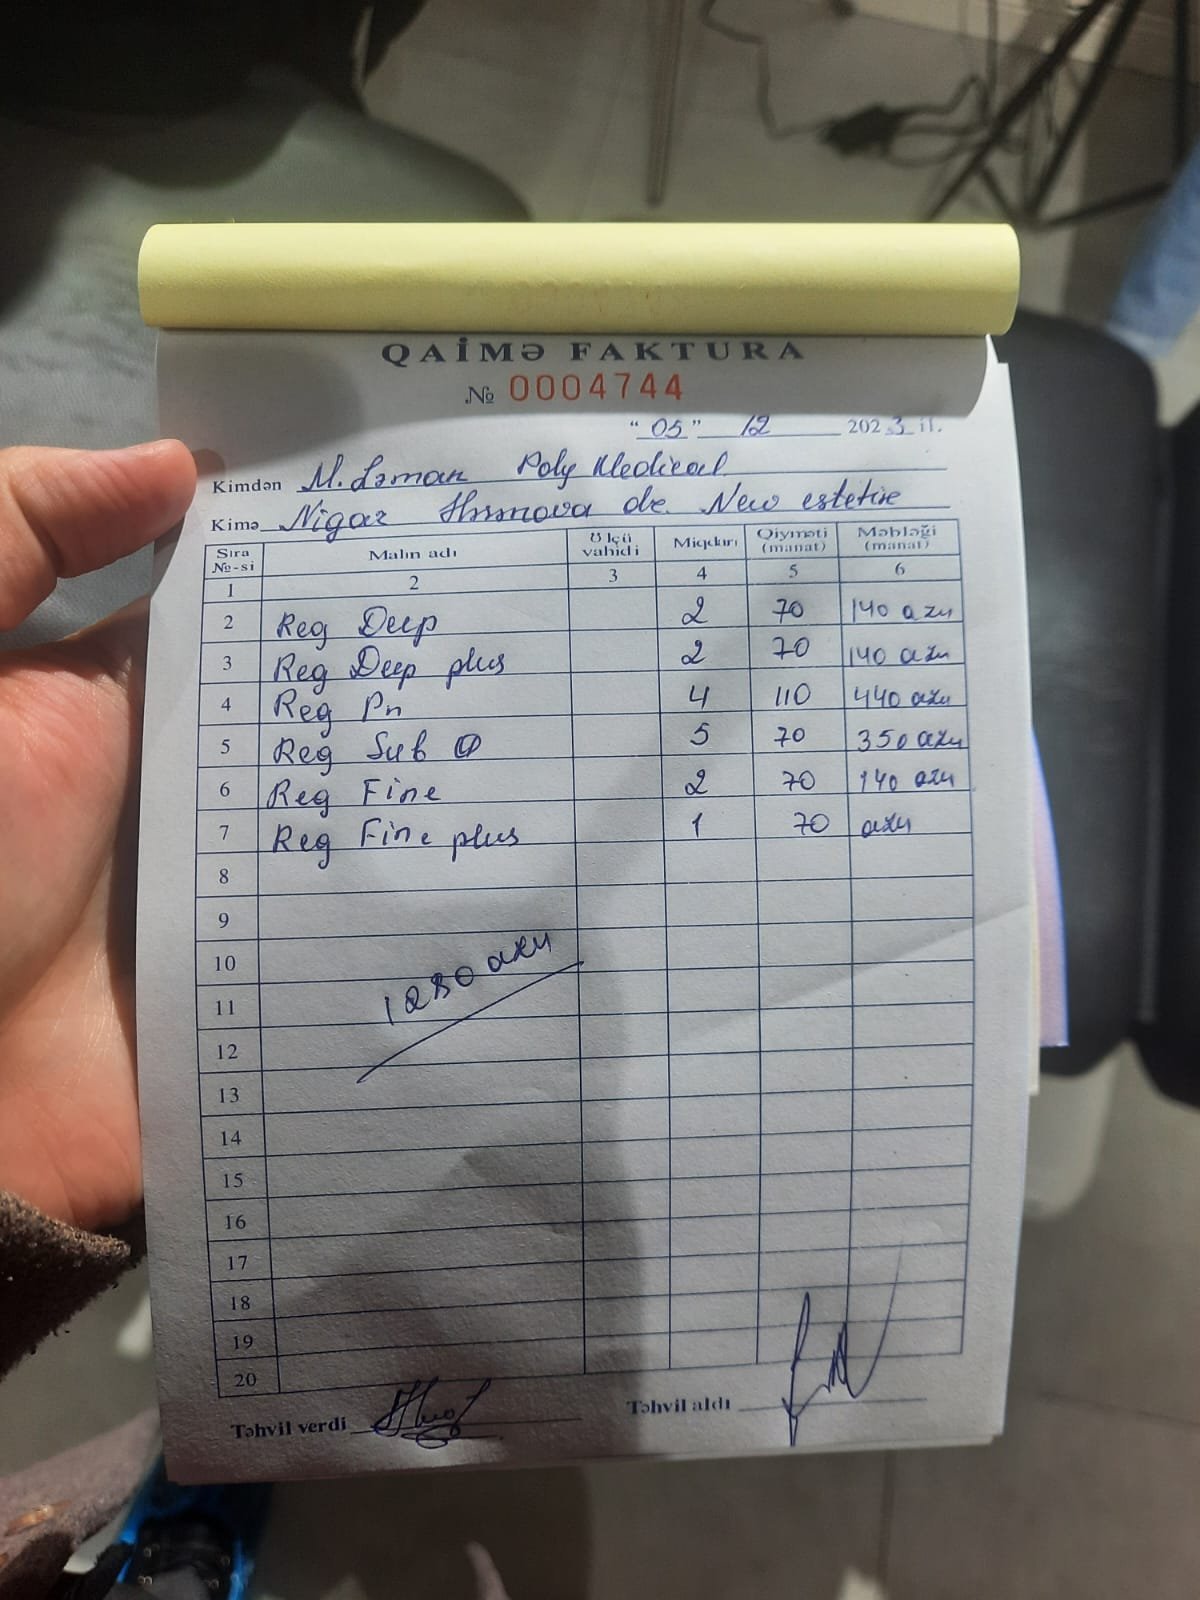 QAİMƏ FAKTURA
№ 0004744
"05" 12 2023 il.
Kimdən M. Ləman Poly Medical
Kimə Nigar Həsənova de. New estetixe
Sıra №-si Malın adı Ölçü vahidi Miqdarı Qiyməti (manat) Məbləği (manat)
1 2 3 4 5 6
2 Reg Deep 2 70 140 azn
3 Reg Deep plus 2 70 140 azn
4 Reg Pn 4 110 440 azn
5 Reg Sub Q 5 70 350 azn
6 Reg Fine 2 70 140 azn
7 Reg Fine plus 1 70 azn
8
9
10
1280 azn
11
12
13
14
15
16
17
18
19
20
Təhvil verdi Təhvil aldı